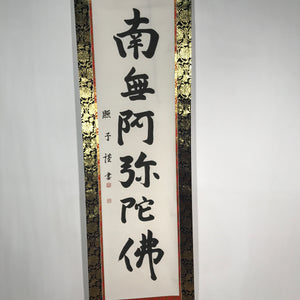 南無阿弥陀佛
照子㥪書